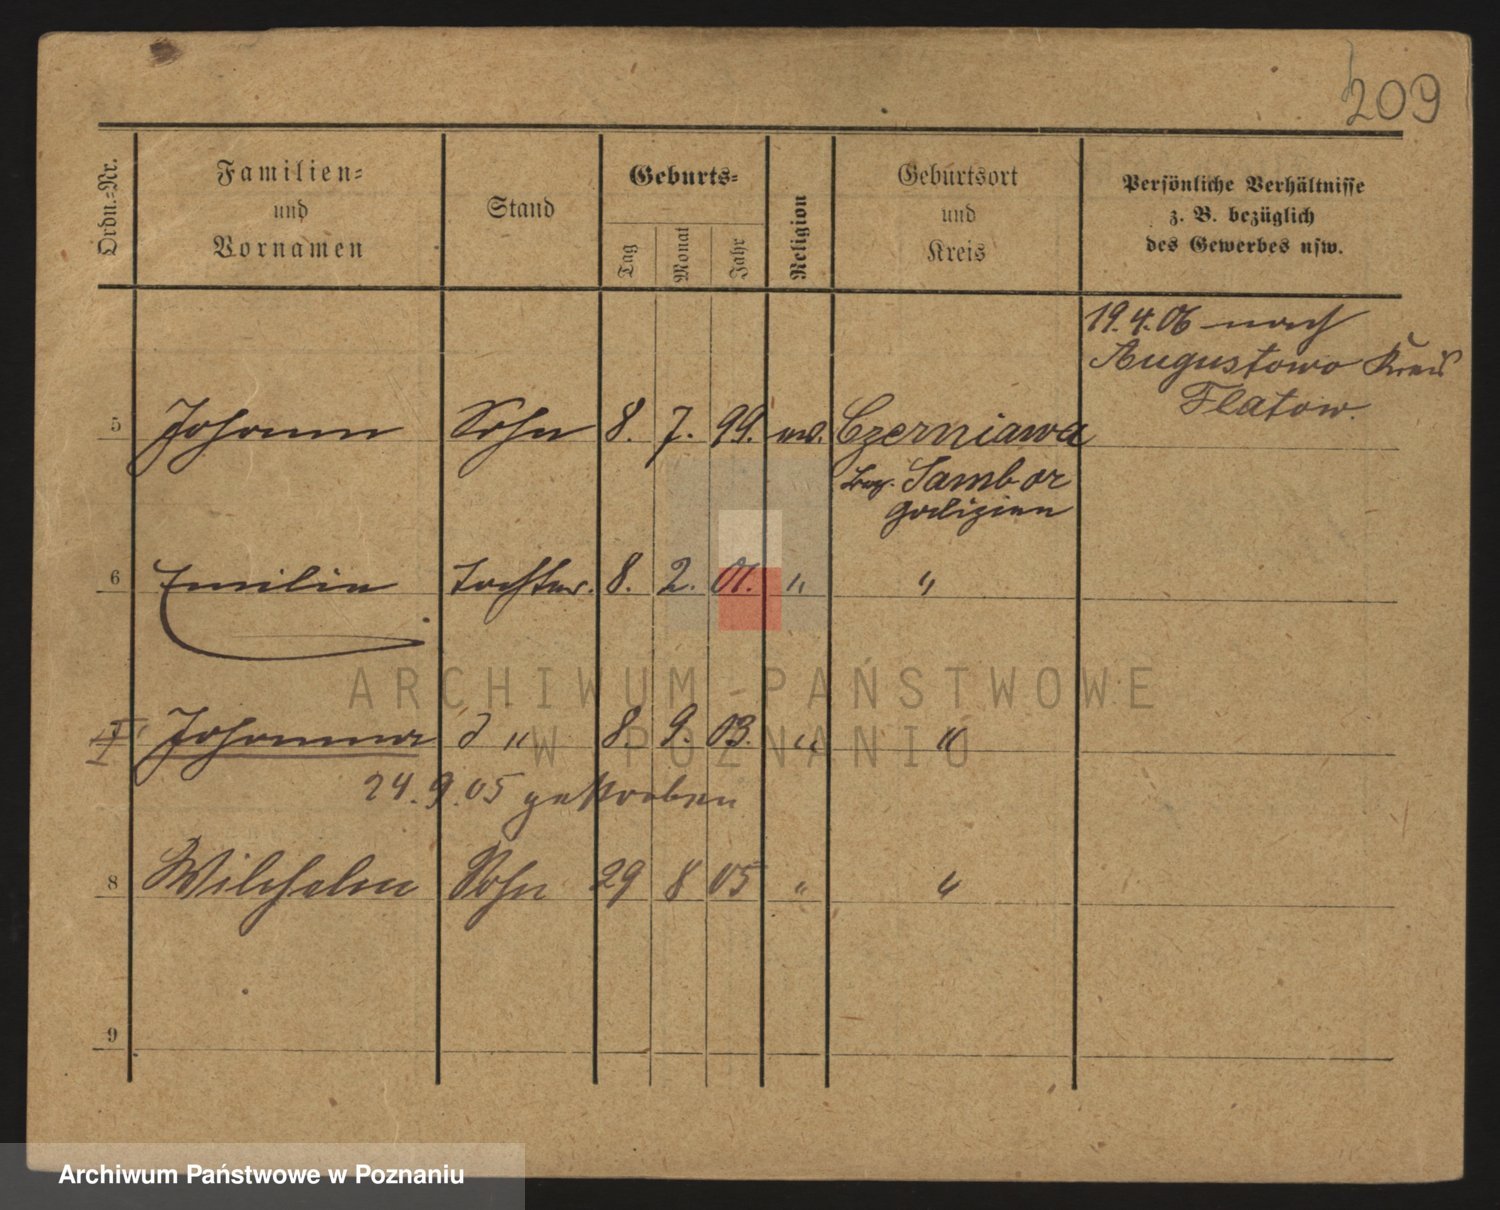 209
Ordn.-Nr.
Familien-
und
Vornamen
Stand
Geburts-
Tag
Monat
Jahr
Religion
Geburtsort
und
Kreis
Persönliche Verhältnisse
z. B. bezüglich
des Gewerbes usw.
19.4.06 nach
Augustowo Kreis
Flatow.
5 Johann Sohn 8. 7. 99. ev. Czerniawa
Bez. Sambor
Galizien
6 Emilie Tochter. 8. 2. 01. " "
7 Johanna d " 8. 9. 03. " "
24.9.05 gestorben
8 Wilhelm Sohn 29 8 05 " "
9
ARCHIWUM PAŃSTWOWE
W POZNANIU
Archiwum Państwowe w Poznaniu